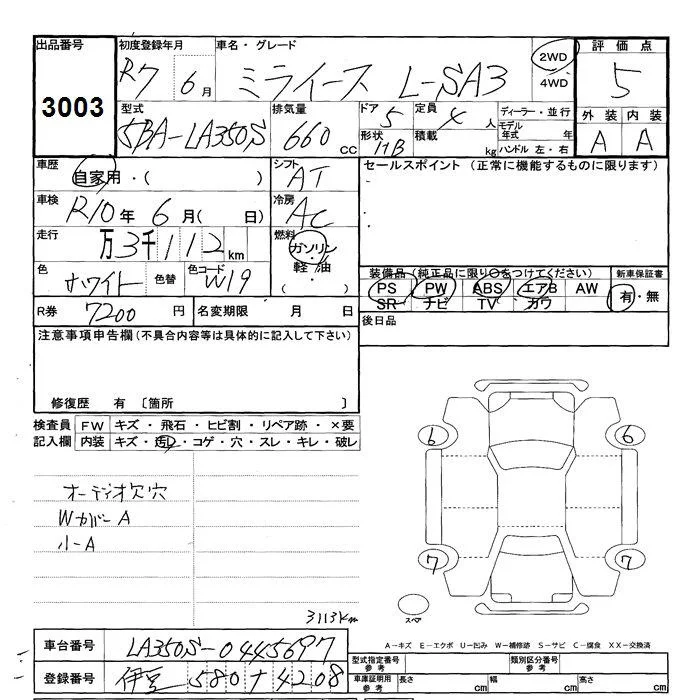 出品番号
3003
初度登録年月
R7 6月
車名・グレード
ミライース L-SA3
2WD
4WD
評価点
5
外装 内装
A A
型式
5BA-LA350S
排気量
660 CC
ドア 5
形状 HB
定員 4人
積載 kg
ディーラー・並行
モデル年式 年
ハンドル 左・右
車歴
自家用・( )
シフト
AT
セールスポイント (正常に機能するものに限ります)
車検
R10年 6月( 日)
冷房
AC
走行
万3千112km
燃料
ガソリン・軽油・( )
色
ホワイト
色替
色コード
W19
装備品(純正品に限り○をつけてください)
PS PW ABS エアB AW
SR ナビ TV カワ
新車保証書
有・無
R券 7200円
名変期限 月 日
後日品
注意事項申告欄(不具合内容等は具体的に記入して下さい)
修復歴 有 〔箇所 〕
検査員記入欄
FW キズ・飛石・ヒビ割・リペア跡・×要
内装 キズ・汚レ・コゲ・穴・スレ・キレ・破レ
オーデオ欠穴
WカバーA
小-A
3113km
6 6
7 7
スペア
A-キズ E-エクボ U-凹み W-補修跡 S-サビ C-腐食 XX-交換済
車台番号 LA350S-0445697
登録番号 伊豆 580 1 4208
型式指定番号 参考
類別区分番号 参考
車庫証明用 参考
長さ cm 幅 cm 高さ cm